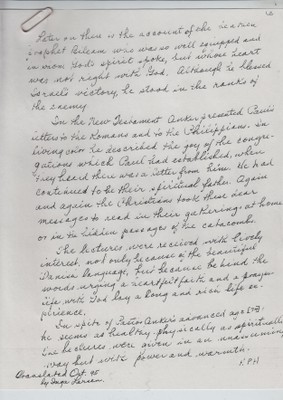 Later on there is the account of the heathen
prophet Bileam who was so well equipped and
in whom God's spirit spoke, but whose heart
was not right with God. Although he blessed
Israels victory, he stood in the ranks of
the enemy.
In the New Testament Anker presented Paul's
letters to the Romans and to the Philippians. In
living color he described the joy of the congre-
gations which Paul had established, when
they heard there was a letter from him. He had
continued to be their spiritual father. Again
and again the Christians took these dear
messages to read in their gatherings at home
or in the hidden passages of the catacombs.
The lectures were received with lively
interest, not only because of the beautiful
Danish language, but because behind the
words urging a heartfelt faith and a prayer
life with God lay a long and rich life ex-
perience.
In spite of Pastor Anker's advanced age
he seems as healthy physically as spiritually
The lectures were given in an unassuming
way but with power and warmth.
P.H
Translated Oct. 95
by Inge Larsen.